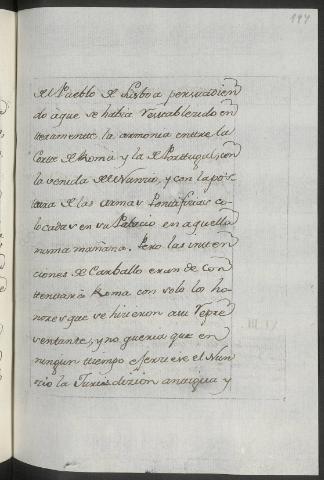 197
del Pueblo de Lisboa persuadien
do à que se habia restablecido en
teramente la armonia entre la
Corte de Roma y la de Portugal, con
la venida del Nuncio, y con la pos
tura de las armas Pontificias co
locadas en su Palacio en aquella
misma mañana. Pero las inten
ciones de Carballo eran de con
tentar à Roma con solo los ho
nores que se hicieron a su repre
sentante, y no queria que en
ningun tiempo exerciese el Nun
zio la Jurisdizion antigua y